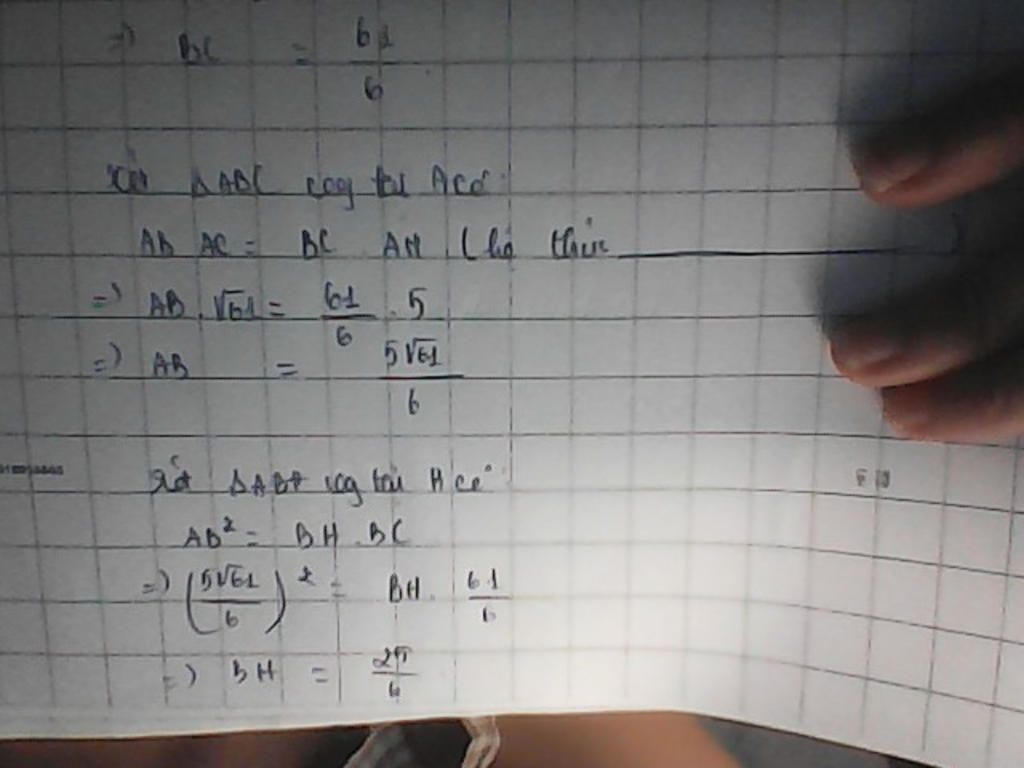 =) BC = 61/6
Xét ΔABC vuông tại A có:
AB . AC = BC . AH (hệ thức ________)
=) AB . √61 = 61/6 . 5
=) AB = 5√61/6
Xét ΔABH vuông tại H có:
AB² = BH . BC
=) (5√61/6)² = BH . 61/6
=) BH = 25/6